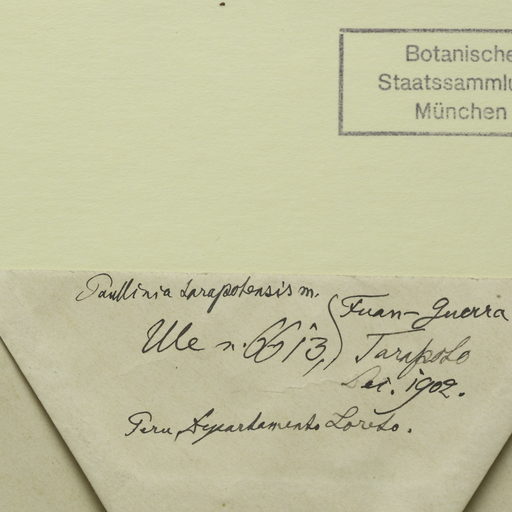 Botanische
Staatssammlu
München
Paullinia tarapotensis m.
Ule n. 6613, Fuan-Guerra
Tarapoto
Dec. 1902.
Peru, Departamento Loreto.